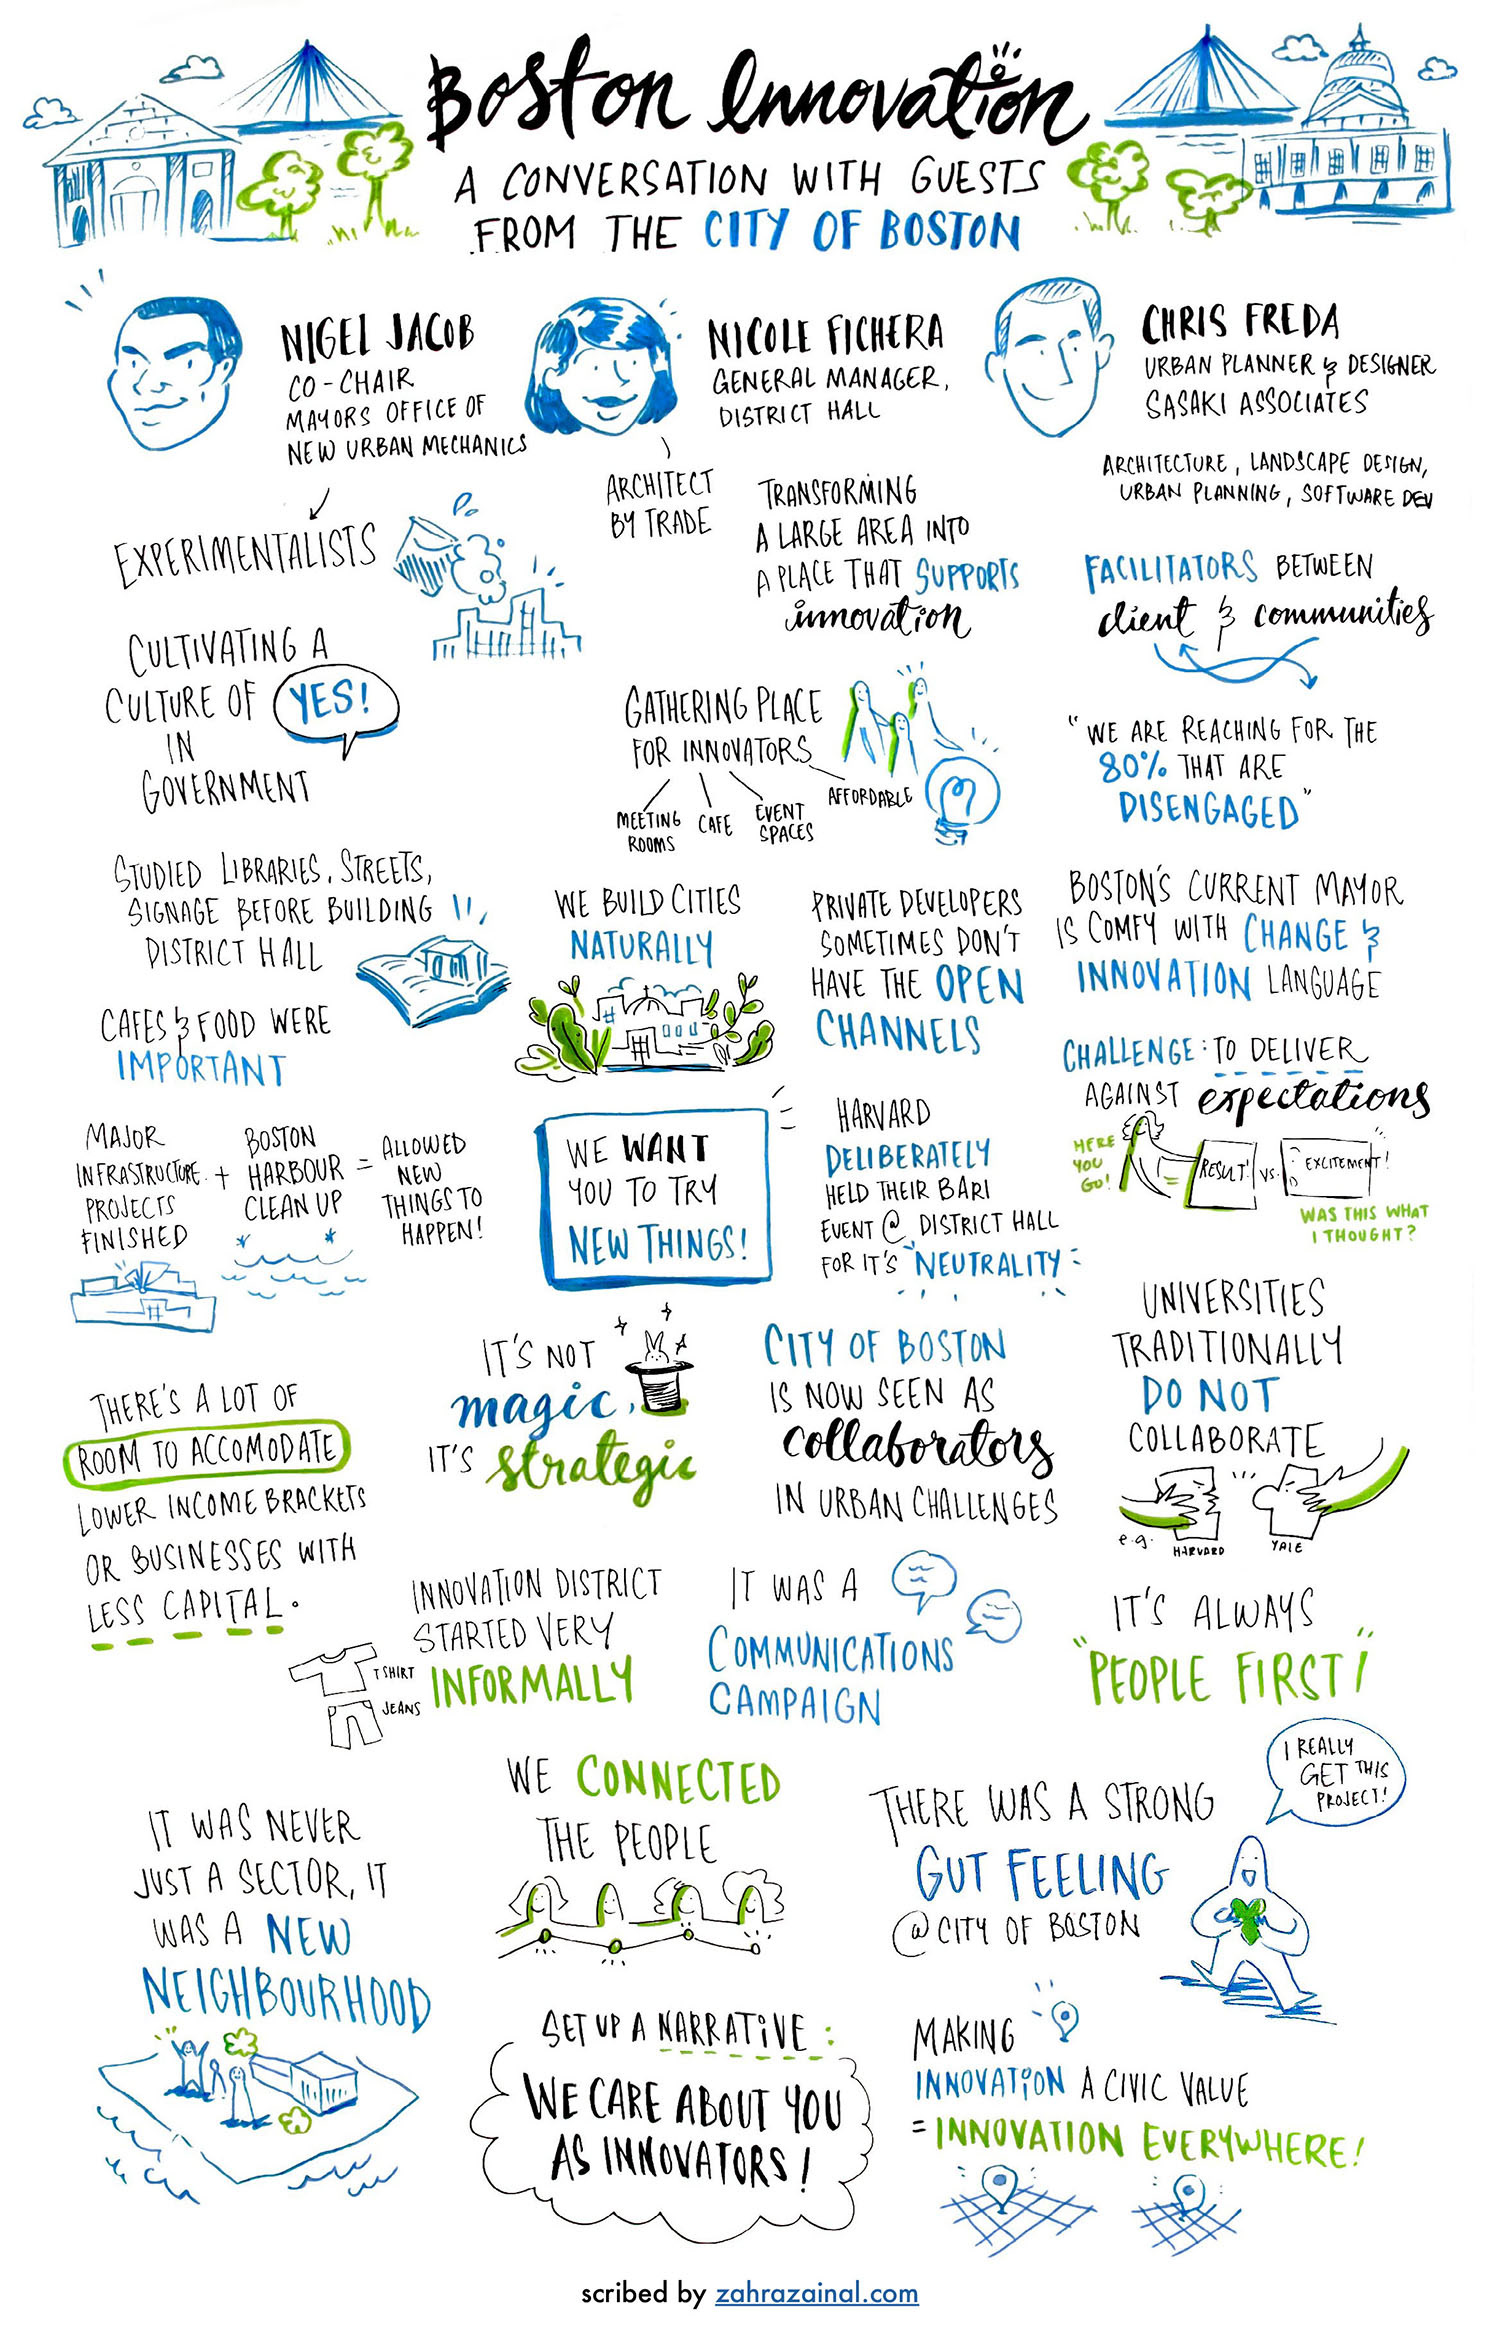 Boston Innovation
A CONVERSATION WITH GUESTS
FROM THE CITY OF BOSTON
NIGEL JACOB
CO-CHAIR
MAYORS OFFICE OF
NEW URBAN MECHANICS
NICOLE FICHERA
GENERAL MANAGER,
DISTRICT HALL
CHRIS FREDA
URBAN PLANNER & DESIGNER
SASAKI ASSOCIATES
EXPERIMENTALISTS
ARCHITECT
BY TRADE
TRANSFORMING
A LARGE AREA INTO
A PLACE THAT SUPPORTS
innovation
ARCHITECTURE, LANDSCAPE DESIGN,
URBAN PLANNING, SOFTWARE DEV
FACILITATORS BETWEEN
client & communities
CULTIVATING A
CULTURE OF YES!
IN
GOVERNMENT
GATHERING PLACE
FOR INNOVATORS
MEETING
ROOMS
CAFE
EVENT
SPACES
AFFORDABLE
"WE ARE REACHING FOR THE
80% THAT ARE
DISENGAGED"
STUDIED LIBRARIES, STREETS,
SIGNAGE BEFORE BUILDING
DISTRICT HALL
WE BUILD CITIES
NATURALLY
PRIVATE DEVELOPERS
SOMETIMES DON'T
HAVE THE OPEN
CHANNELS
BOSTON'S CURRENT MAYOR
IS COMFY WITH CHANGE &
INNOVATION LANGUAGE
CAFES & FOOD WERE
IMPORTANT
CHALLENGE: TO DELIVER
AGAINST expectations
HERE
YOU
GO!
RESULT!
VS.
EXCITEMENT!
WAS THIS WHAT
I THOUGHT?
MAJOR
INFRASTRUCTURE
PROJECTS
FINISHED
+
BOSTON
HARBOUR
CLEAN UP
=
ALLOWED
NEW
THINGS TO
HAPPEN!
WE WANT
YOU TO TRY
NEW THINGS!
HARVARD
DELIBERATELY
HELD THEIR BARI
EVENT @ DISTRICT HALL
FOR IT'S "NEUTRALITY"
IT'S NOT
magic,
IT'S strategic
CITY OF BOSTON
IS NOW SEEN AS
collaborators
IN URBAN CHALLENGES
UNIVERSITIES
TRADITIONALLY
DO NOT
COLLABORATE
e.g.
HARVARD
YALE
THERE'S A LOT OF
ROOM TO ACCOMODATE
LOWER INCOME BRACKETS
OR BUSINESSES WITH
LESS CAPITAL.
INNOVATION DISTRICT
STARTED VERY
INFORMALLY
T SHIRT
JEANS
IT WAS A
COMMUNICATIONS
CAMPAIGN
IT'S ALWAYS
"PEOPLE FIRST!"
WE CONNECTED
THE PEOPLE
THERE WAS A STRONG
GUT FEELING
@ CITY OF BOSTON
I REALLY
GET THIS
PROJECT!
IT WAS NEVER
JUST A SECTOR, IT
WAS A NEW
NEIGHBOURHOOD
SET UP A NARRATIVE:
WE CARE ABOUT YOU
AS INNOVATORS!
MAKING
INNOVATION A CIVIC VALUE
= INNOVATION EVERYWHERE!
scribed by zahrazainal.com